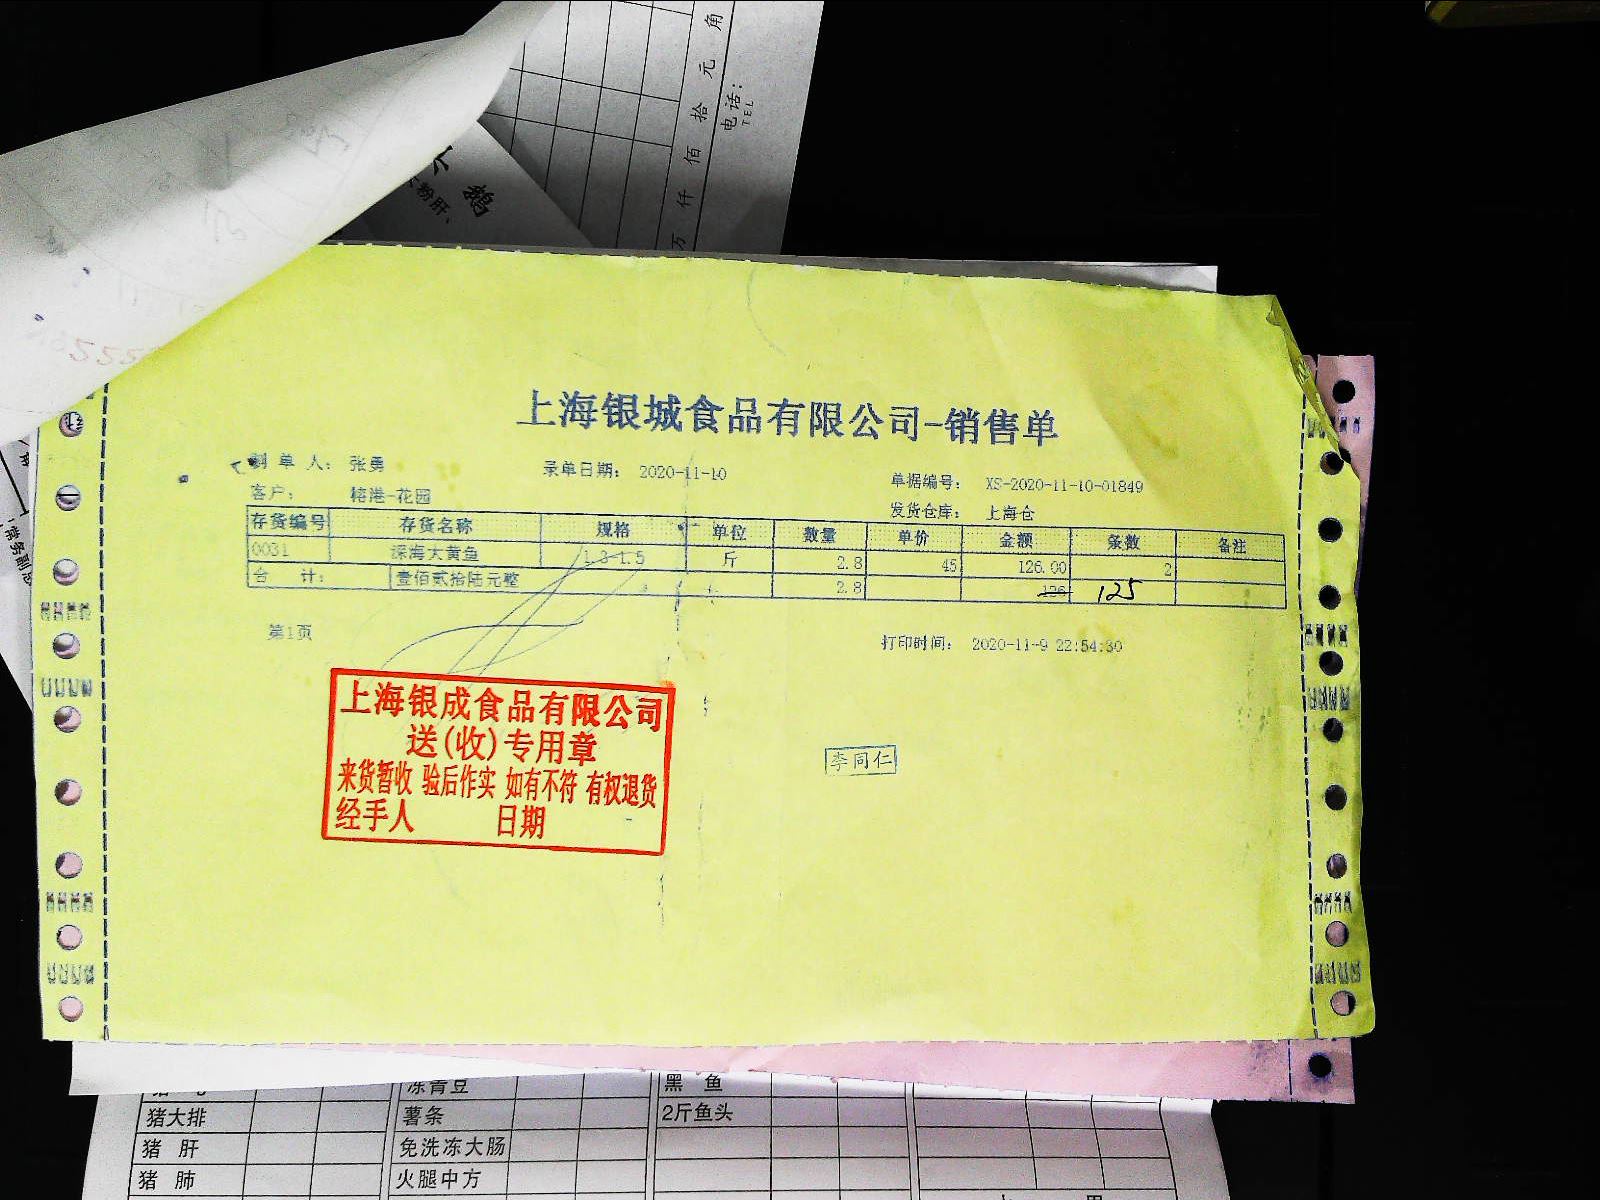 角
元
拾
佰
仟
万
电话：
TEL
粉肝、
上海银城食品有限公司-销售单
制 单 人： 张勇 录单日期： 2020-11-10 单据编号： XS-2020-11-10-01849
客户： 榕港-花园 发货仓库： 上海仓
存货编号 存货名称 规格 单位 数量 单价 金额 条数 备注
0031 深海大黄鱼 1.3-1.5 斤 2.8 45 126.00 2
合 计： 壹佰贰拾陆元整 2.8 126 125
第1页 打印时间： 2020-11-9 22:54:30
上海银成食品有限公司
送(收)专用章
来货暂收 验后作实 如有不符 有权退货
经手人 日期
李同仁
冻青豆 黑 鱼
猪大排 薯条 2斤鱼头
猪 肝 免洗冻大肠
猪 肺 火腿中方